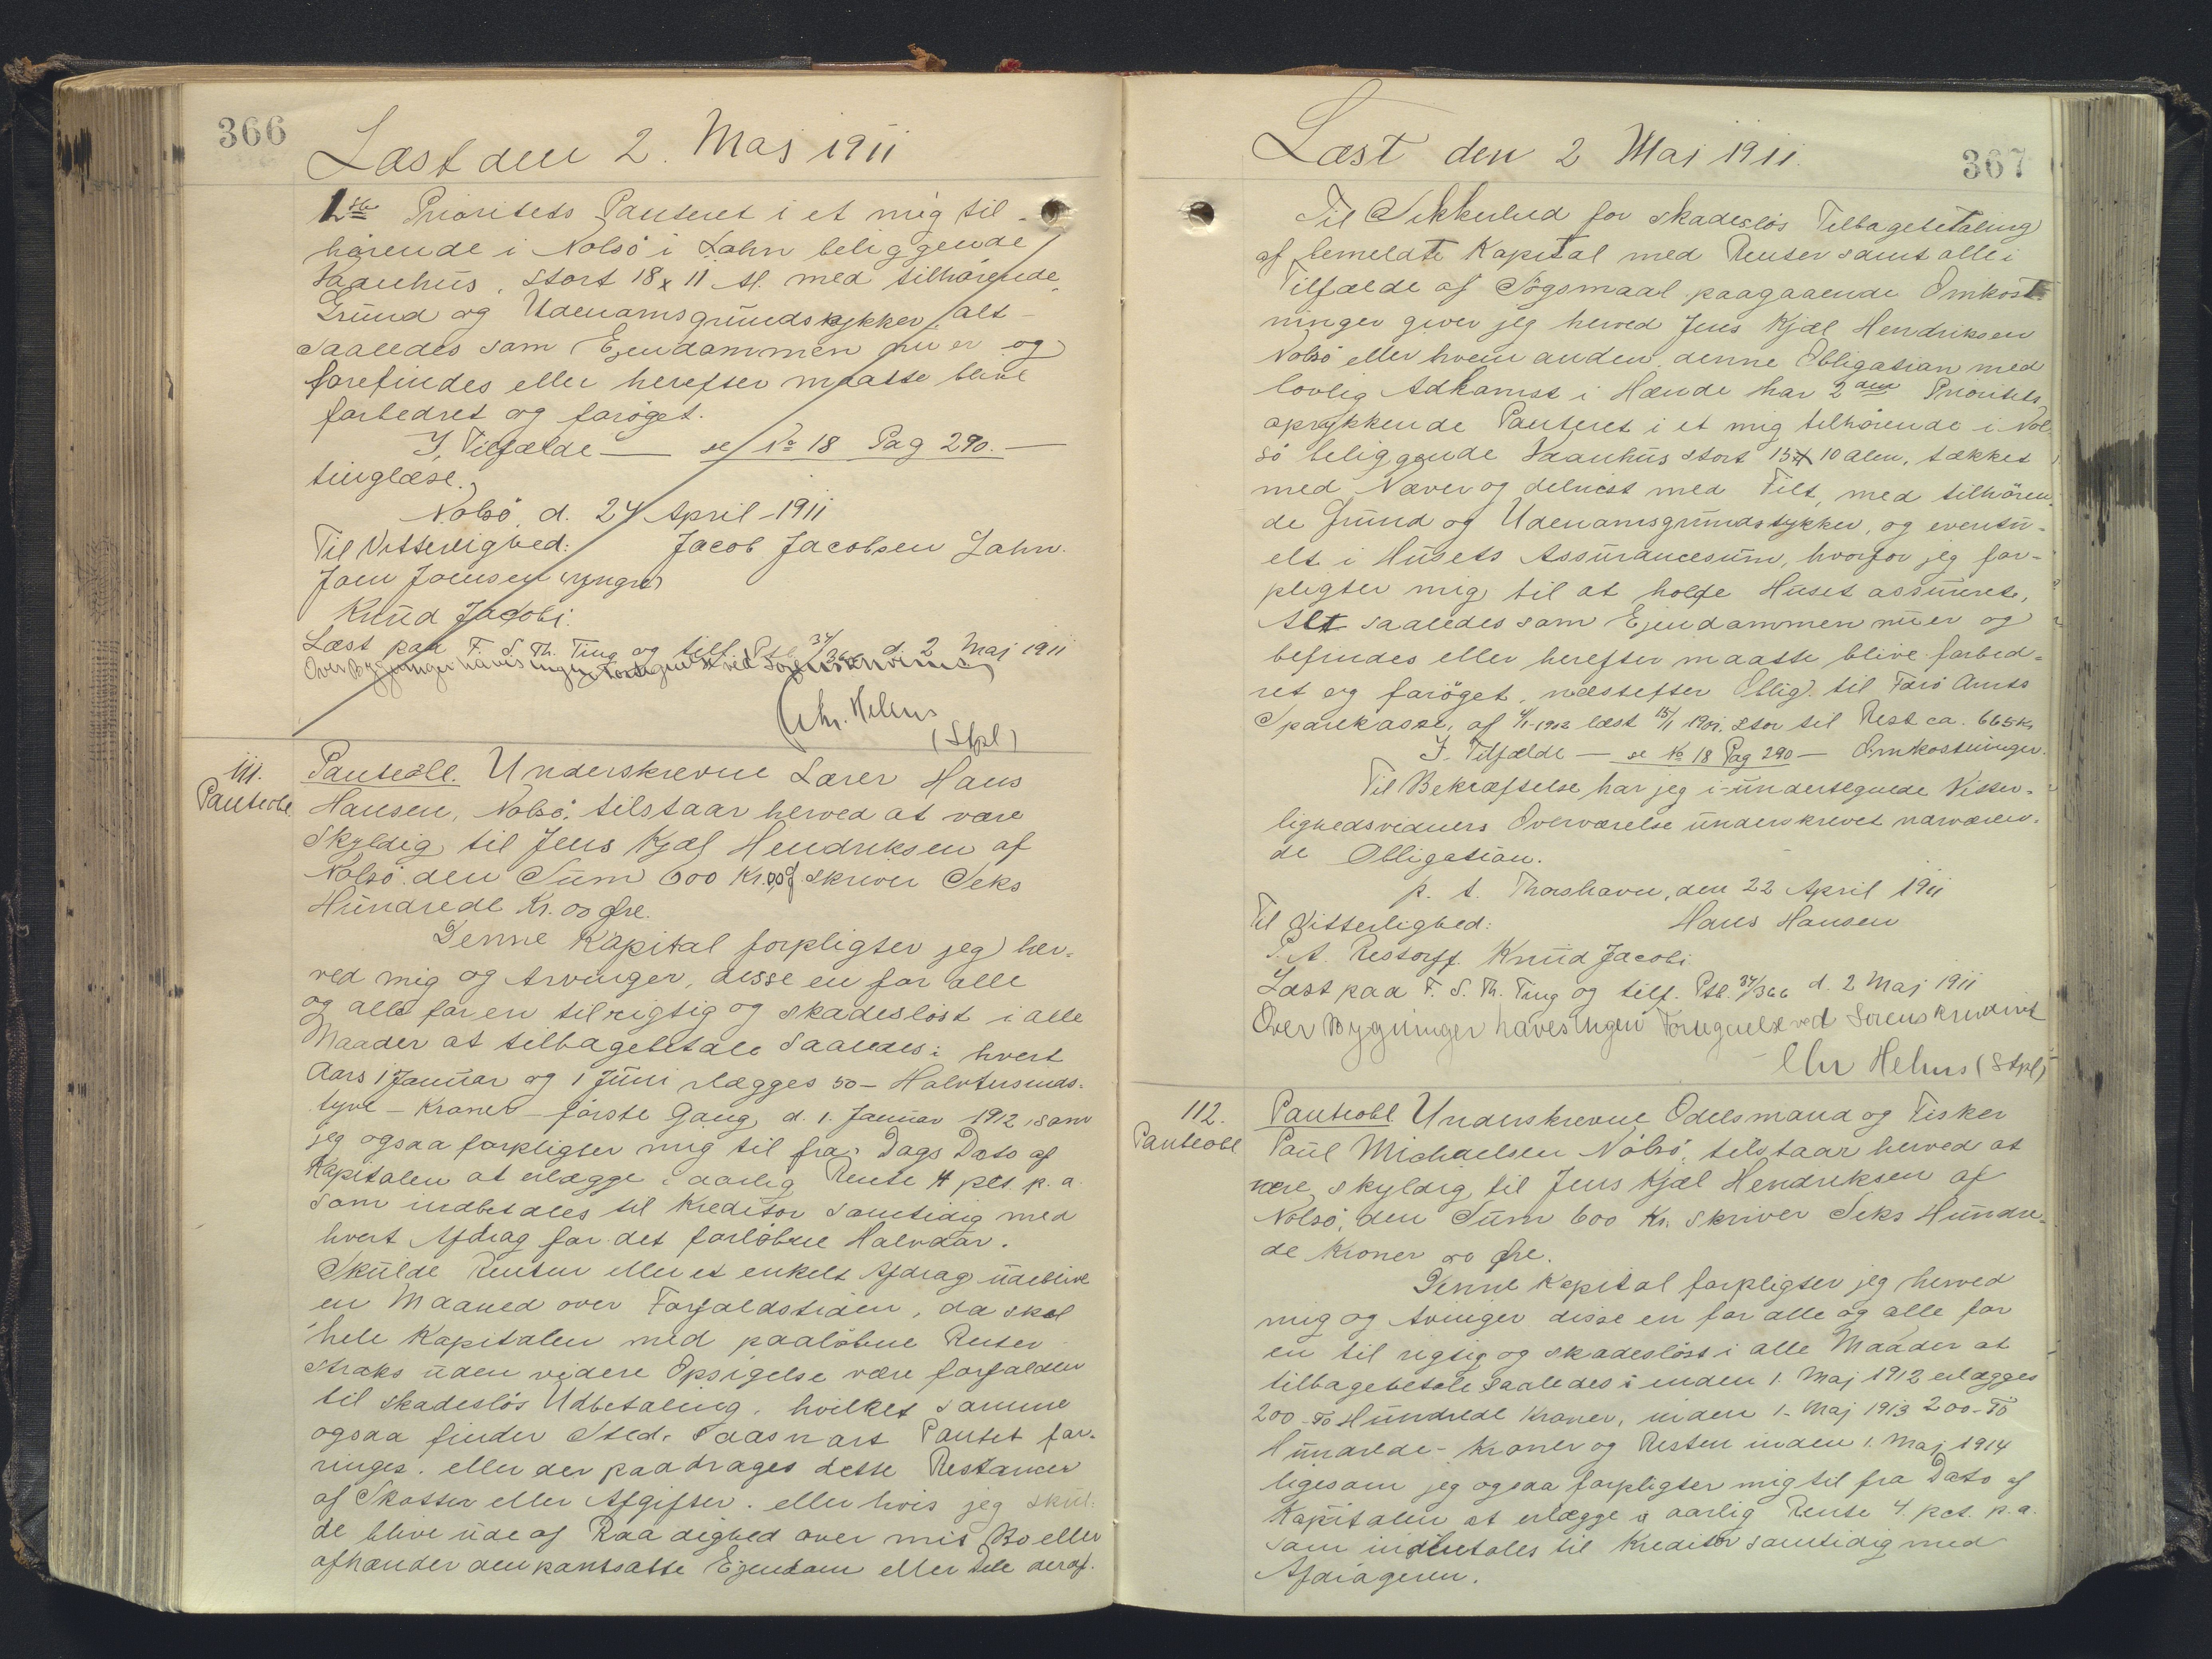 366
Læst den 2. Maj 1911
1ste Prioritets Panteret i et mig til-
hørende i Nolsö i Lahn beliggende
Vaanhus, stort 18 x 11 Al. med tilhørende
Grund og Udenamsgrundstykker, alt
saaledes som Ejendommen nu er og
forefindes eller herefter maatte blive
forbedret og forøget.
I Tilfælde — se No 18 Pag 290. —
tinglæse.
Nolsö d. 24 April 1911
Til Vitterlighed: Jacob Jacobsen Lahn.
Joen Joensen (yngre)
Knud Jacobi.
Læst paa F. S. Th. Ting og tilf. Ptb. 34/366 d. 2 Maj 1911
Over Bygninger haves ingen Fortegnelse ved Sorenskriveriet
Chr. Helms
(Stpl)
111.
Panteobl.
Panteobl. Underskrevne Lærer Hans
Hansen, Nolsö, tilstaar herved at være
skyldig til Jens Kjæl Hendriksen af
Nolsö den Sum 600 Kr. skriver Seks
Hundrede Kr. 00 Øre.
Denne Kapital forpligter jeg her-
ved mig og Arvinger, disse en for alle
og alle for en til rigtig og skadesløst i alle
Maader at tilbagebetale saaledes: hvert
Aars 1 Januar og 1 Juni erlægges 50 – Halvtresinds-
tyve – Kroner – første Gang d. 1. Januar 1912, som
jeg ogsaa forpligter mig til fra Dags Dato af
Kapitalen at erlægge i aarlig Rente 4 pct. p. a.
som indbetales til Kreditor samtidig med
hvert Afdrag for det forløbne Halvaar.
Skulde Renten eller et enkelt Afdrag udeblive
en Maaned over Forfaldstiden, da skal
hele Kapitalen med paaløbne Renter
straks uden videre Opsigelse være forfalden
til skadesløs Udbetaling, hvilket samme
ogsaa finder Sted, saasnart Pantet for-
ringes, eller der paadrages dette Restancer
af Skatter eller Afgifter, eller hvis jeg skul-
de blive ude af Raadighed over mit Bo eller
afhænder den pantsatte Ejendom eller Dele deraf.
Læst den 2 Maj 1911.
367
Til Sikkerhed for skadesløs Tilbagebetaling
af bemeldte Kapital med Renter samt alle i
Tilfælde af Søgsmaal paagaaende Omkost-
ninger giver jeg herved Jens Kjæl Hendriksen
Nolsö eller hvem anden, denne Obligation med
lovlig Adkomst i Hænde har 2den Prioritets
oprykkende Panteret i et mig tilhørende i Nol-
sö beliggende Vaanhus stort 15 x 10 Alen, tækket
med Næver og delvist med Filt, med tilhören-
de Grund og Udenamsgrundstykker, og eventu-
elt i Husets Assurancesum, hvorfor jeg for-
pligter mig til at holde Huset assureret,
Alt saaledes som Ejendommen nu er og
befindes eller herefter maatte blive forbed-
ret og forøget, næstefter Oblig. til Færø Amts
Sparekasse, af læst stor til Rest ca. 665 Kr.
I Tilfælde — se No 18 Pag 290 — Omkostninger.
Til Bekræftelse har jeg i undertegnede Vitter-
lighedsvidners Overværelse underskrevet nærværen-
de Obligation.
p. t. Thorshavn, den 22 April 1911
Til Vitterlighed: Hans Hansen
P. A. Restorff. Knud Jacobi.
Læst paa F. S. Th. Ting og tilf. Ptb. 34/366 d. 2 Maj 1911
Over Bygninger haves ingen Fortegnelse ved Sorenskriveriet
Chr Helms (Stpl)
112.
Panteobl
Panteobl. Underskrevne Odelsmand og Fisker
Paul Michaelsen Nölsö, tilstaar herved at
være skyldig til Jens Kjæl Hendriksen af
Nolsö, den Sum 600 Kr. skriver Seks Hundre-
de Kroner 00 Øre.
Denne Kapital forpligter jeg herved
mig og Arvinger disse en for alle og alle for
en til rigtig og skadesløst i alle Maader at
tilbagebetale saaledes: inden 1. Maj 1912 erlægges
200 – To Hundrede Kroner, inden 1. Maj 1913 200 – To
Hundrede – Kroner og Resten inden 1. Maj 1914
ligesom jeg ogsaa forpligter mig til fra Dato af
Kapitalen at erlægge i aarlig Rente 4 pct. p. a.
som indbetales til Kreditor samtidig med
Afdragene.